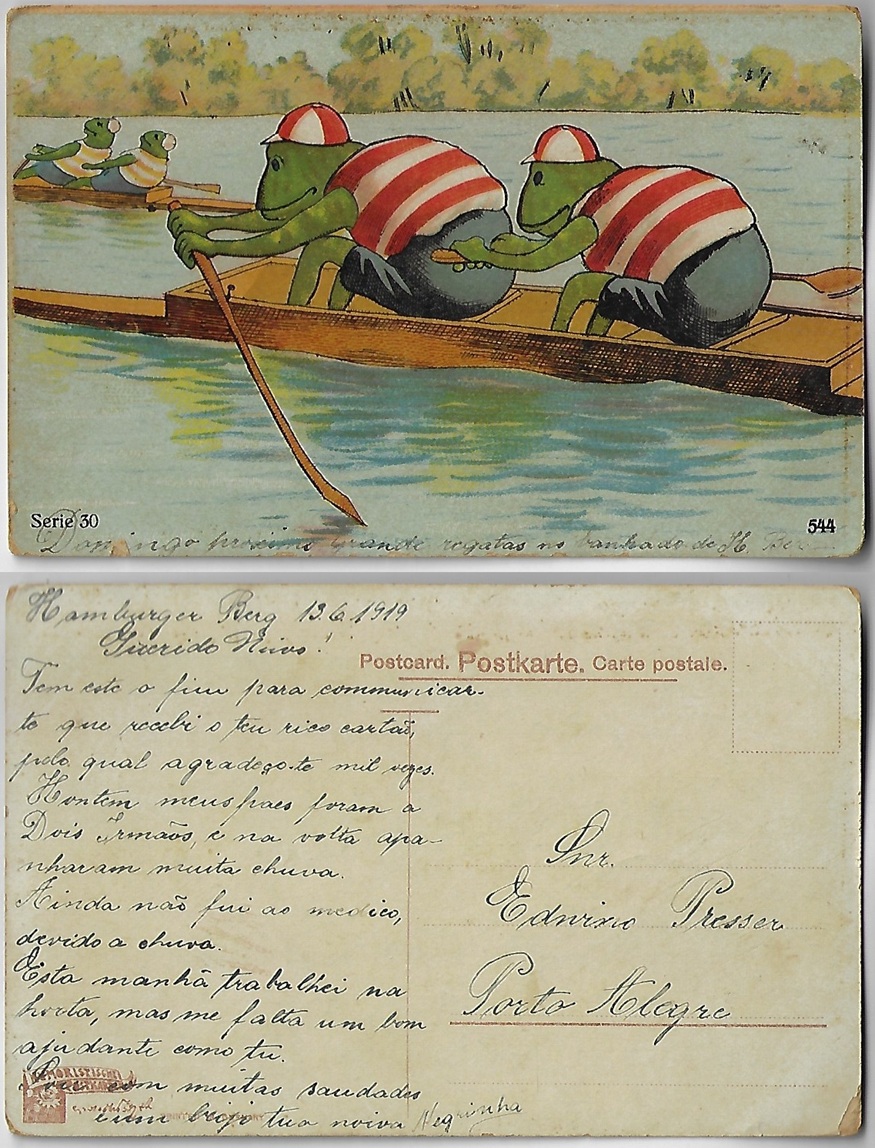 Serie 30
544
Domingo proximo grande regatas no banhado de H. Ber
Hamburger Berg 13.6.1919
Querido Nivo!
Postcard. Postkarte. Carte postale.
Tem este o fim para communicar-
te que recebi o teu rico cartão,
pelo qual agradeço-te mil vezes.
Hontem meus paes foram a
Dois Irmãos, e na volta apa-
nharam muita chuva.
Ainda não fui ao medico,
devido a chuva.
Esta manhã trabalhei na
horta, mas me falta um bom
ajudante como tu.
com muitas saudades
e um beijo tua noiva Negrinha
Snr.
Edwino Presser
Porto Alegre